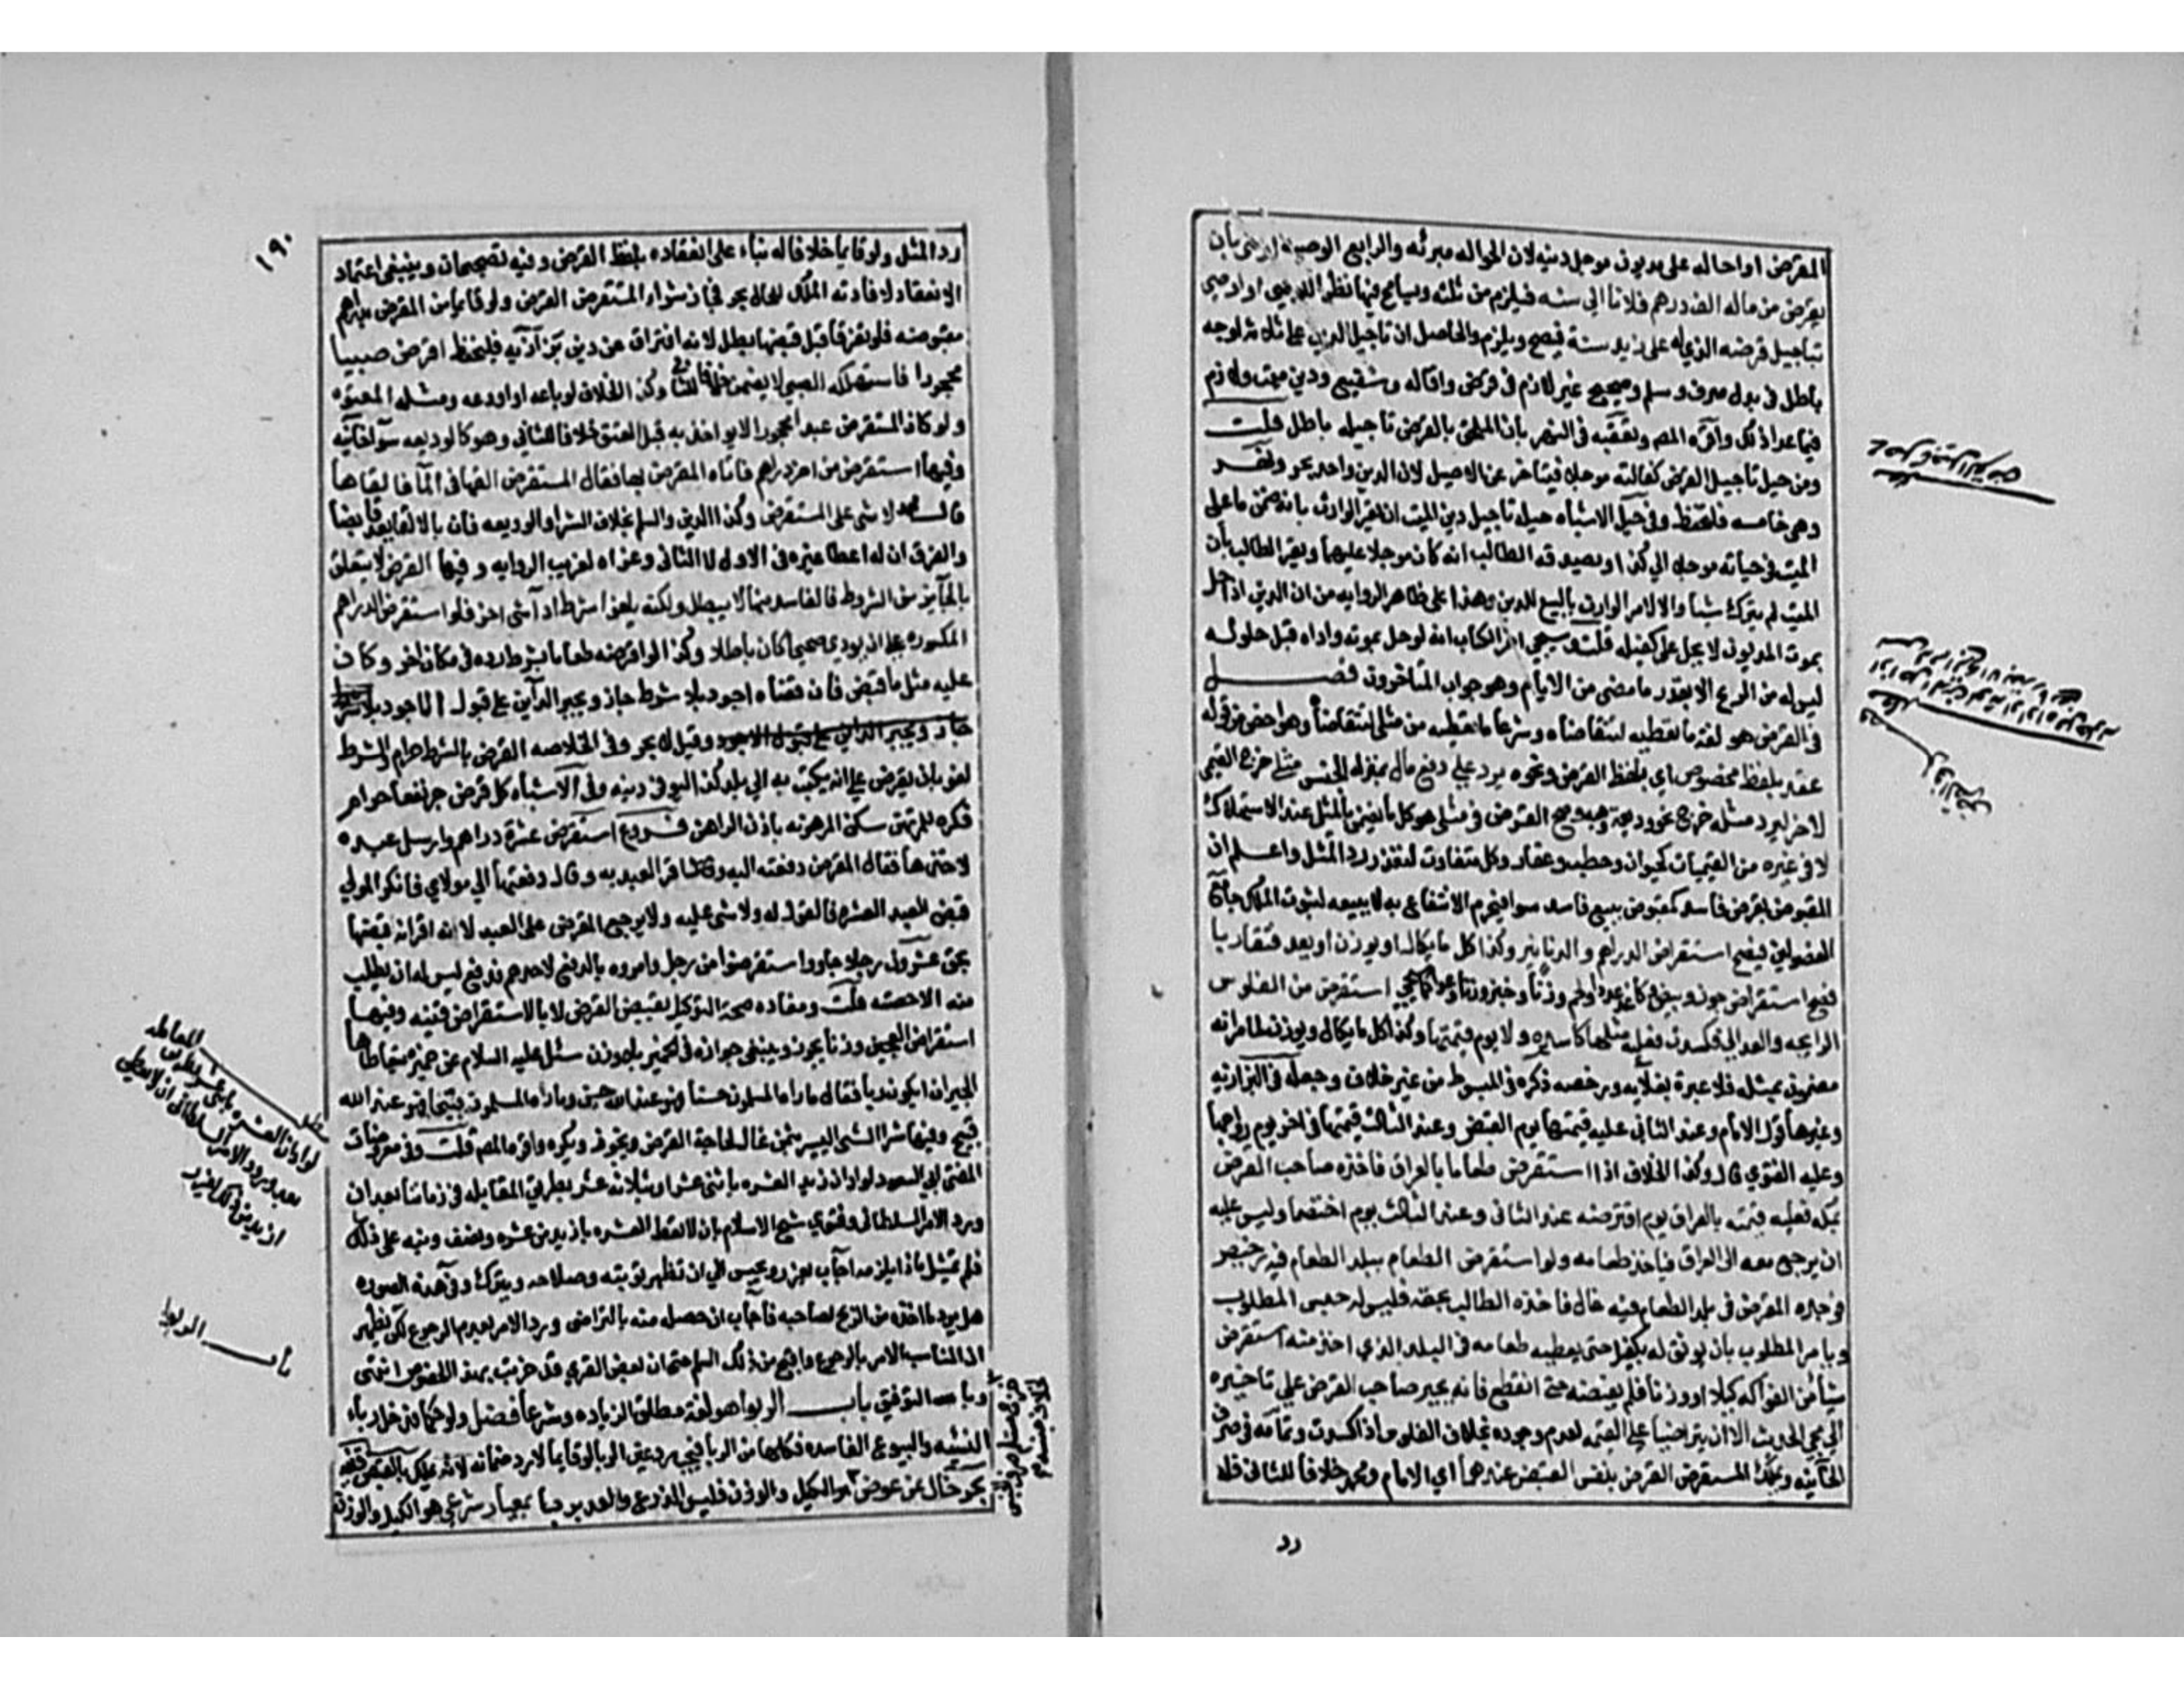 المقرض او احاله على مديون موجل دينه لان الحواله مبرئه والرابع الوصيه اوصى بأن
يقرض من ماله الف درهم فلانا الى سنه فيلزم من ثلثه ويسامح فيها نظرا للموصي او اوصى
بتاجيل قرضه الذي له على زيد سنة فيصح ويلزم والحاصل ان تاجيل الدين على ثلاثة اوجه
باطل في بدل صرف وسلم وصحيح غير لازم في قرض واقاله وشفيع ودين ميت ولازم
فيما عدا ذلك واقره المصـ وتعقبه في النهر بأن الملحق بالقرض تاجيله باطل قلت
ومن حيل تاجيل القرض كفالته موجلا فيتاخر عن الاصيل لان الدين واحد بحر ونهر
وهي خامسه فلتحفظ وفي حيل الاشباه حيلة تاجيل دين الميت ان يقر الوارث بانه ضمن ما على
الميت في حياته موجلا الى كذا ويصدقه الطالب انه كان موجلا عليهما ويقر الطالب بأن
الميت لم يترك شيأ والا لامر الوارث بالبيع للدين وهذا على ظاهر الروايه من ان الدين اذا حل
بموت المديون لا يحل على كفيله قلت وسيجي اخر الكتاب انه لو حل بموته واداه قبل حلوله
ليس له من الربح الا بقدر ما مضى من الايام وهو جواب المتأخرون فصـــل
في القرض هو لغة ما تعطيه لتتقاضاه وشرعا ما تعطيه من مثلي لتتقاضاه وهو اخصر من قوله
عقد بلفظ مخصوص اي بلفظ القرض ونحوه يرد على دفع مال بمنزلة الجنس مثلي خرج القيمي
لاخر ليرد مثله خرج نحو وديعة وهبه وصح القرض في مثلي هو كل ما يضمن بالمثل عند الاستهلاك
لا في غيره من القيميات كحيوان وحطب وعقار وكل متفاوت لتعذر رد المثل واعلم ان
المقبوض بقرض فاسد كمقبوض ببيع فاسد سوا فيحرم الانتفاع به لا بيعه لثبوت الملك جامع
الفصولين فيصح استقراض الدراهم والدنانير وكذا كل ما يكال او يوزن او يعد متقاربا
فصح استقراض جوز وبيض وكاغد عددا ولحم وزنا وخبز وزنا وعددا كما سيجي استقرض من الفلوس
الرايجه والعدالي فكسدت فعليه مثلها كاسده ولا يوم قيمتها وكذا كل ما يكال ويوزن لما مر انه
مضمون بمثله فلا عبرة بغلآيه ورخصه ذكره في المبسوط من غير خلاف وجعله في البزازيه
وغيرها قول الامام وعند الثاني عليه قيمتها يوم القبض وعند الثالث قيمتها في اخر يوم رواجها
وعليه الفتوي قال وكذا الخلاف اذا استقرض طعاما بالعراق فاخذه صاحب القرض
بمكه فعليه قيمته بالعراق يوم اقترضه عند الثاني وعند الثالث يوم اختصما وليس عليه
ان يرجع معه الى العراق فيأخذ طعامه ولو استقرض الطعام ببلد الطعام فيه رخيص
فوجده المقرض في بلد الطعام فيه غال فاخذه الطالب بحقه فليس له حبس المطلوب
ويامر المطلوب بان يوثق له بكفيل حتى يعطيه طعامه في البلد الذي اخذ منه استقرض
شيأ من الفواكه كيلا او وزنا فلم يقبضه حتى انقطع فانه يجبر صاحب القرض على تاخيره
الى مجي الحديث الا ان يتراضيا على القيمه لعدم وجوده بخلاف الفلوس اذا كسدت وتمامه في صرف
الخانيه ويملك المستقرض القرض بنفس القبض عندهما اي الامام ومحمد خلافا للثاني فله
رد
١٩٠
رد المثل ولو قايما خلافا له بناء على انعقاده بلفظ القرض وفيه تصحيحان وينبغي اعتماد
الانعقاد لافادته الملك للحال بحر فجاز شراء المستقرض القرض ولو قايما من المقرض بدراهم
مقبوضه فلو تفرقا قبل قبضها بطل لانه افتراق عن دين بزازيه فليحفظ اقرض صبيا
محجورا فاستهلكه الصبي لا يضمن خلافا للثاني وكذا الخلاف لو باعه او اودعه ومثله المعتوه
ولو كان المستقرض عبدا محجورا لا يواخذ به قبل العتق خلافا للثاني وهو كالوديعه سوا خانيه
وفيها استقرض من اخر دراهم فاتاه المقرض بها فقال المستقرض القها في المآ فالقاها
قال محمد لا شي على المستقرض وكذا الدين والسلم بخلاف الشرا والوديعه فان بالالقا يعد قابضا
والفرق ان له اعطا غيره في الاول لا الثاني وعزاه لغريب الروايه وفيها القرض لا يتعلق
بالجايز من الشروط فالفاسد منها لا يبطله ولكنه يلغو اشرط رد آشي اخر فلو استقرض الدراهم
المكسوره على ان يودي صحيحا كان باطلا وكذا لو اقرضه طعاما بشرط رده في مكان اخر وكان
عليه مثل ما قبض فان قضاه اجود بلا شرط جاز ويجبر الدآين على قبول الاجود بلا شرط
جاز ويجبر الداين على قبول الاجود وقيل لا بحر وفي الخلاصه القرض بالشرط حرام والشرط
لغو بان يقرض على ان يكتب به الى بلد كذا ليوفي دينه وفي الاشباه كل قرض جر نفعا حرام
فكره للمرتهن سكنى المرهونه باذن الراهن فـروع استقرض عشرة دراهم وارسل عبده
لاخذها فقال المقرض دفعته اليه واقر العبد به وقال دفعتها الى مولاي فانكر المولى
قبض العبد العشره فالقول له ولا شي عليه ولا يرجع المقرض على العبد لانه اقر انه قبضها
بحق عشرون رجلا جاووا استقرضوا من رجل وامروه بالدفع لاحدهم فدفع ليس له ان يطلب
منه الا حصته قلت ومفاده صحة التوكيل بقبض القرض لا بالاستقراض قنيه وفيها
استقراض العجين وزنا يجوز وينبغي جوازه في الخمير بلا وزن سئل عليه السلام عن خميرة يتعاطاها
الجيران ايكون ربا فقال ما راه المسلمون حسنا فهو عند الله حسن وما راه المسلمون قبيحا فهو عند الله
قبيح وفيها شرا الشي اليسير بثمن غال لحاجة القرض يجوز ويكره واقره المصـ قلت وفي معروضات
المفتي ابي السعود لو ادان زيد العشره باثني عشر او بثلاثه عشر بطريق المعامله في زماننا بعد ان
ورد الامر السلطاني وفتوى شيخ الاسلام بان لا تعطى العشره بازيد من عشره ونصف ونبه على ذلك
فلم يمتثل ماذا يلزمه اجاب يعزر ويحبس الى ان تظهر توبته وصلاحه ويترك وفي هذه الصوره
هل يرد ما اخذه من الربح لصاحبه فاجاب ان حصله منه بالتراضي ورد الامر بعدم الرجوع لكن يظهر
ان المناسب الامر بالرجوع واقبح من ذلك السلم حتى ان بعض القرى قد خربت بهذا الخصوص انتهى
وبالله التوفيق باب الربوا هو لغة مطلق الزياده وشرعا فضل ولو حكما فدخل ربا
النسيه والبيوع الفاسده فكلها من الربا فيجب رد عين الربا لو قايما لا رد ضمانه لانه يملك بالقبض قنيه
بحر خال عن عوض بمعيار شرعي هو الكيل والوزن فليس الذرع والعد بربا
مطلب
المعامله
لو ادان العشره باثني عشر بطريق
بعد ورود الامر السلطاني ان لا تعطى
ازيد من ذلك يعزر
باب الربوا